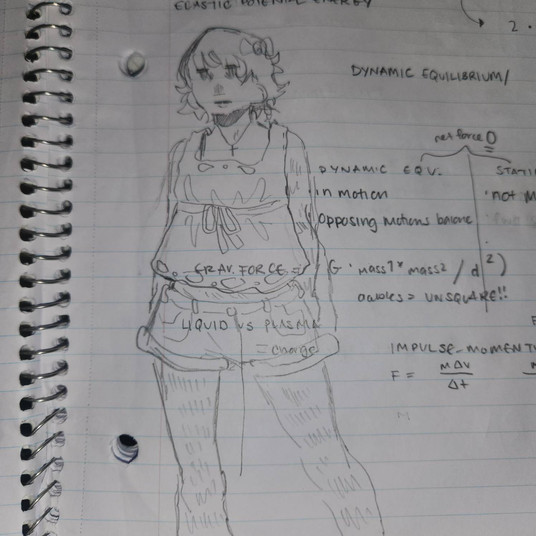 ELASTIC POTENTIAL ENERGY
2.
DYNAMIC EQUILIBRIUM/
net force 0
DYNAMIC EQV.
STATI
in motion
not M
opposing motions balance
GRAV. FORCE = (G · mass1 * mass2 / d²)
doubles = UNSQUARE!!
LIQUID VS PLASMA
= charge
IMPULSE-MOMENT
F = MΔV / Δt